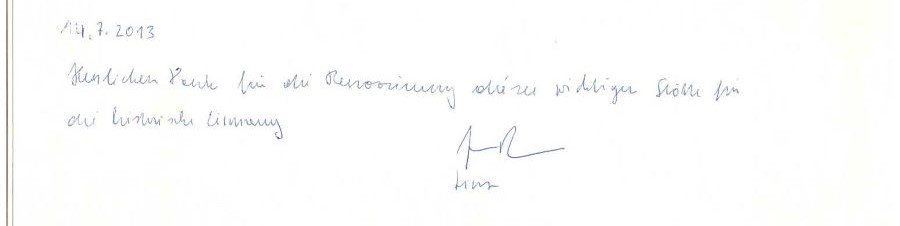 14.7.2013
Herzlichen Dank für die Renovierung dieser wichtigen Stätte für
die historische Erinnerung